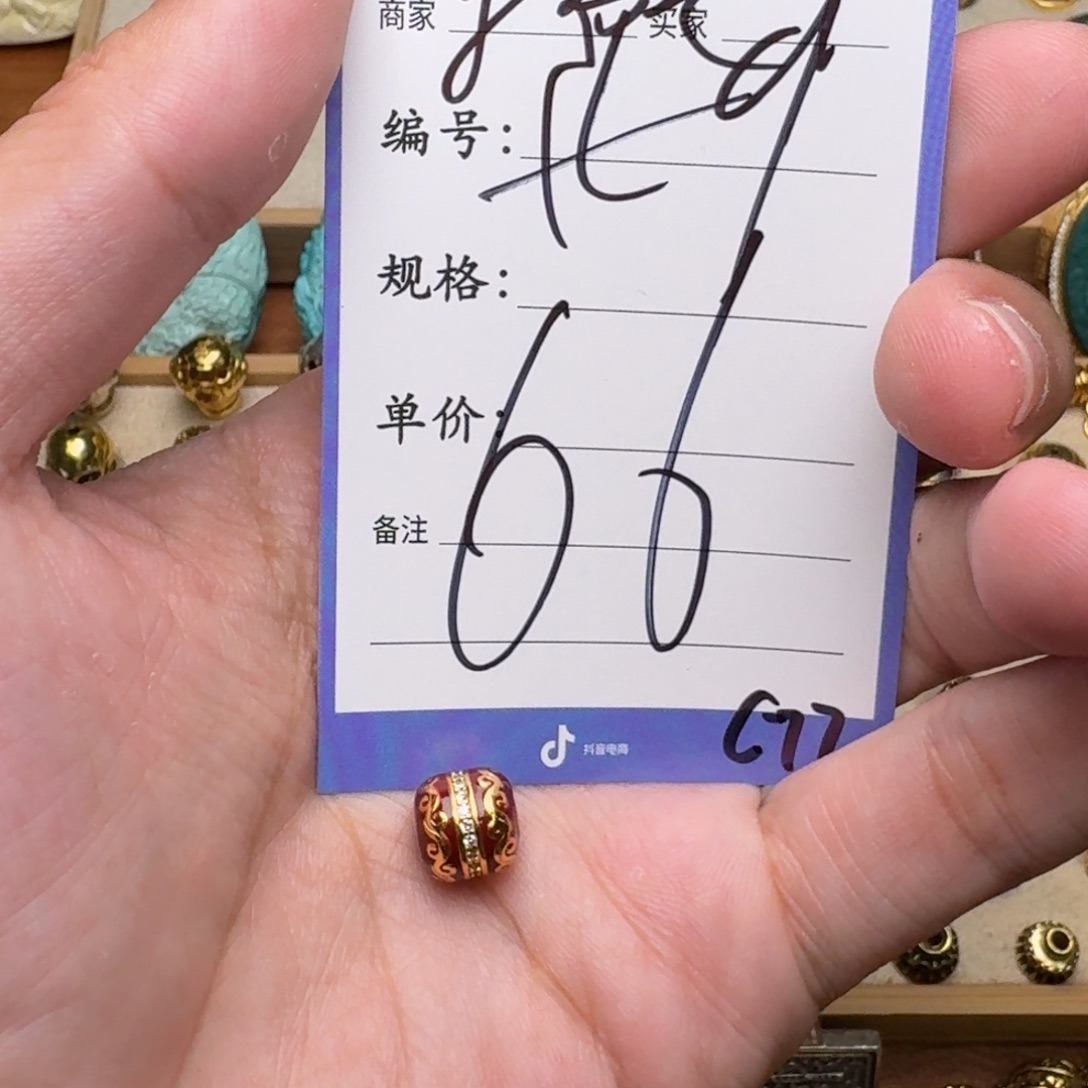 商家 买家
编号:
规格:
单价:
备注
66
抖音电商
C77